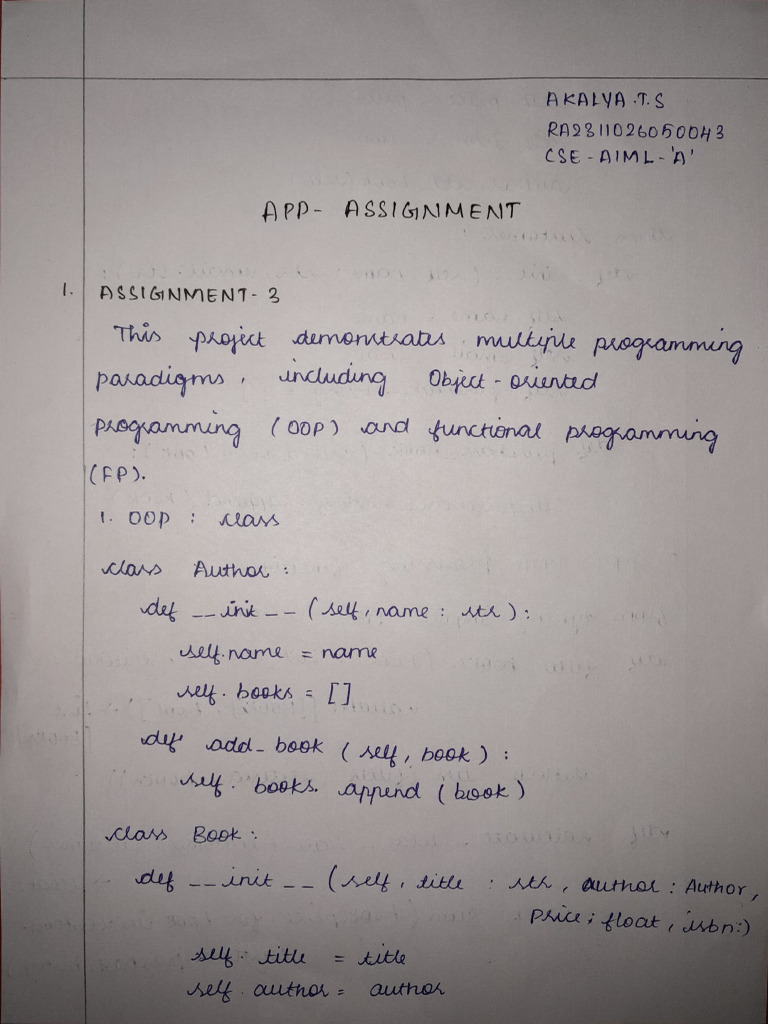 AKALYA.T.S
RA2811026050043
CSE-AIML-'A'
APP- ASSIGNMENT
1. ASSIGNMENT-3
This project demonstrates multiple programming
paradigms, including Object-oriented
programming (OOP) and functional programming
(FP).
1. OOP : class
class Author :
def __init__ (self, name : str) :
self.name = name
self. books = []
def add_book (self, book) :
self. books. append (book)
class Book :
def __init__ (self, title : str, author : Author,
price : float, isbn:)
self. title = title
self. author = author